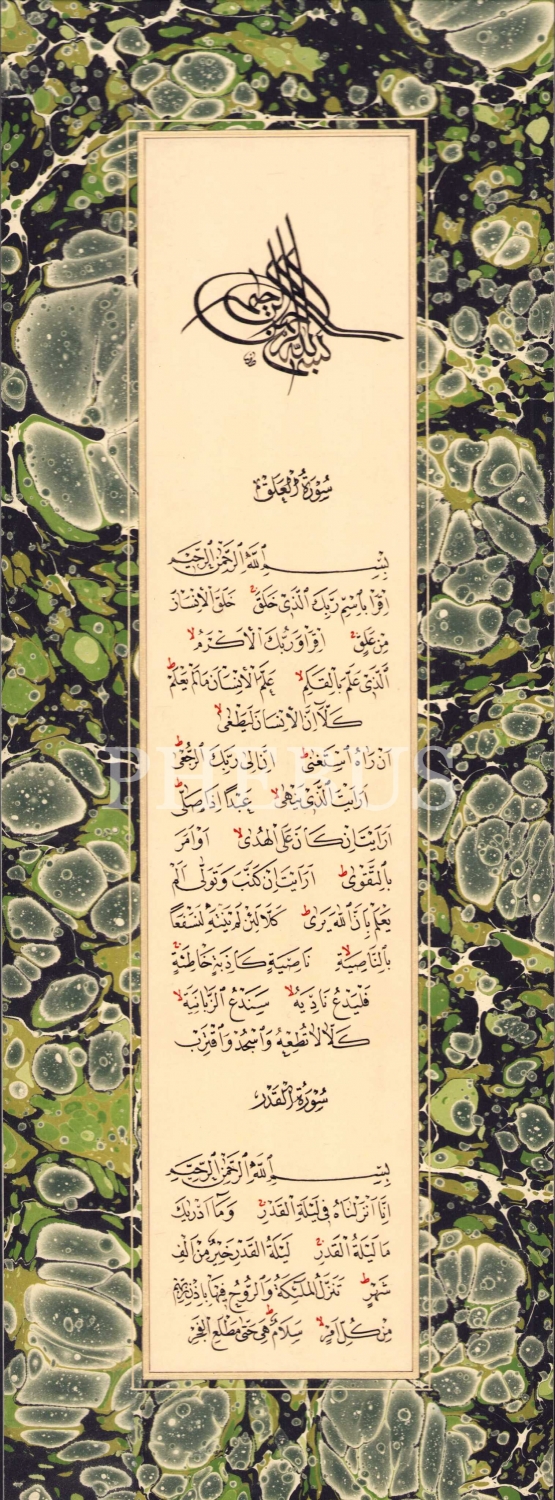 بسم الله الرحمن الرحيم
سُورَةُ الْعَلَقِ
بِسْمِ اللّٰهِ الرَّحْمٰنِ الرَّحِيمِ
اِقْرَأْ بِاسْمِ رَبِّكَ الَّذِى خَلَقَ خَلَقَ الْاِنْسَانَ
مِنْ عَلَقٍ اِقْرَأْ وَرَبُّكَ الْاَكْرَمُ
اَلَّذِى عَلَّمَ بِالْقَلَمِ عَلَّمَ الْاِنْسَانَ مَا لَمْ يَعْلَمْ
كَلَّا اِنَّ الْاِنْسَانَ لَيَطْغٰى
اَنْ رَاٰهُ اسْتَغْنٰى اِنَّ اِلٰى رَبِّكَ الرُّجْعٰى
اَرَاَيْتَ الَّذِى يَنْهٰى عَبْدًا اِذَا صَلّٰى
اَرَاَيْتَ اِنْ كَانَ عَلَى الْهُدٰى اَوْ اَمَرَ
بِالتَّقْوٰى اَرَاَيْتَ اِنْ كَذَّبَ وَتَوَلّٰى اَلَمْ
يَعْلَمْ بِاَنَّ اللّٰهَ يَرٰى كَلَّا لَئِنْ لَمْ يَنْتَهِ لَنَسْفَعًا
بِالنَّاصِيَةِ نَاصِيَةٍ كَاذِبَةٍ خَاطِئَةٍ
فَلْيَدْعُ نَادِيَهُ سَنَدْعُ الزَّبَانِيَةَ
كَلَّا لَا تُطِعْهُ وَاسْجُدْ وَاقْتَرِبْ
سُورَةُ الْقَدْرِ
بِسْمِ اللّٰهِ الرَّحْمٰنِ الرَّحِيمِ
اِنَّا اَنْزَلْنَاهُ فِى لَيْلَةِ الْقَدْرِ وَمَا اَدْرٰيكَ
مَا لَيْلَةُ الْقَدْرِ لَيْلَةُ الْقَدْرِ خَيْرٌ مِنْ اَلْفِ
شَهْرٍ تَنَزَّلُ الْمَلٰئِكَةُ وَالرُّوحُ فِيهَا بِاِذْنِ رَبِّهِمْ
مِنْ كُلِّ اَمْرٍ سَلَامٌ هِىَ حَتّٰى مَطْلَعِ الْفَجْرِ
PHEBUS